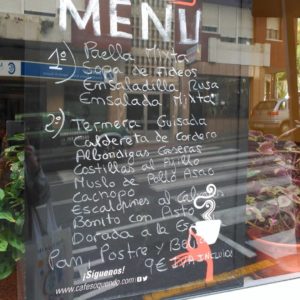 MENU
1º) Paella Mixta
Sopa de Fideos
Ensaladilla Rusa
Ensalada Mixta
2º) Ternera Guisada
Caldereta de Cordero
Albóndigas Caseras
Costillas al
Muslo de Pollo Asao
Cachopo
Escalopines al
Bonito con Pisto
Dorada a la
Pan, Postre y
9€ IVA INCLUIDO
¡Síguenos!
www.cafesoquendo.com